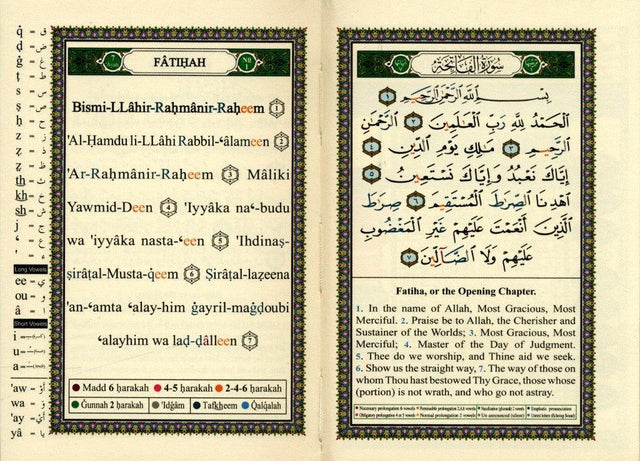 q̇ = ق
ḍ = ض
ġ = غ
ṭ = ط
s = س
ṣ = ص
ḥ = ح
th = ث
kh = خ
sh = ش
j = ج
Long Vowels
ee =
ou =
â =
Short Vowels
i =
u =
a =
'aw = أَوْ
wa = وَ
'ay = أَيْ
yâ = يَا
FÂTIḤAH
No 1
Bismi-LLâhir-Raḥmânir-Raḥeem 1
'Al-Ḥamdu li-LLâhi Rabbil-‘âlameen 2
'Ar-Raḥmânir-Raḥeem 3 Mâliki
Yawmid-Deen 4 'Iyyâka na‘-budu
wa 'iyyâka nasta-‘een 5 'Ihdinaṣ-
ṣirâṭal-Musta-q̇eem 6 Ṣirâṭal-lazeena
'an-‘amta ‘alay-him ġayril-maġḍoubi
‘alayhim wa laḍ-ḍâlleen 7
Madd 6 ḥarakah 4-5 ḥarakah 2-4-6 ḥarakah
Ġunnah 2 ḥarakah 'Idġâm Tafkheem Q̇alq̇alah
سُورَةُ الفَاتِحَةِ
بِسْمِ اللَّهِ الرَّحْمَٰنِ الرَّحِيمِ ١
الْحَمْدُ لِلَّهِ رَبِّ الْعَالَمِينَ ٢ الرَّحْمَٰنِ
الرَّحِيمِ ٣ مَالِكِ يَوْمِ الدِّينِ ٤
إِيَّاكَ نَعْبُدُ وَإِيَّاكَ نَسْتَعِينُ ٥
اهْدِنَا الصِّرَاطَ الْمُسْتَقِيمَ ٦ صِرَاطَ
الَّذِينَ أَنْعَمْتَ عَلَيْهِمْ غَيْرِ الْمَغْضُوبِ
عَلَيْهِمْ وَلَا الضَّالِّينَ ٧
Fatiha, or the Opening Chapter.
1. In the name of Allah, Most Gracious, Most
Merciful. 2. Praise be to Allah, the Cherisher and
Sustainer of the Worlds; 3. Most Gracious, Most
Merciful; 4. Master of the Day of Judgment.
5. Thee do we worship, and Thine aid we seek.
6. Show us the straight way, 7. The way of those on
whom Thou hast bestowed Thy Grace, those whose
(portion) is not wrath, and who go not astray.
Necessary prolongation 6 vowels Permissible prolongation 2,4,6 vowels Nazalization (ghunnah) 2 vowels Emphatic pronunciation
Obligatory prolongation 4 or 5 vowels Normal prolongation 2 vowels Un announced (silent) Unrest letters (Echoing Sound)